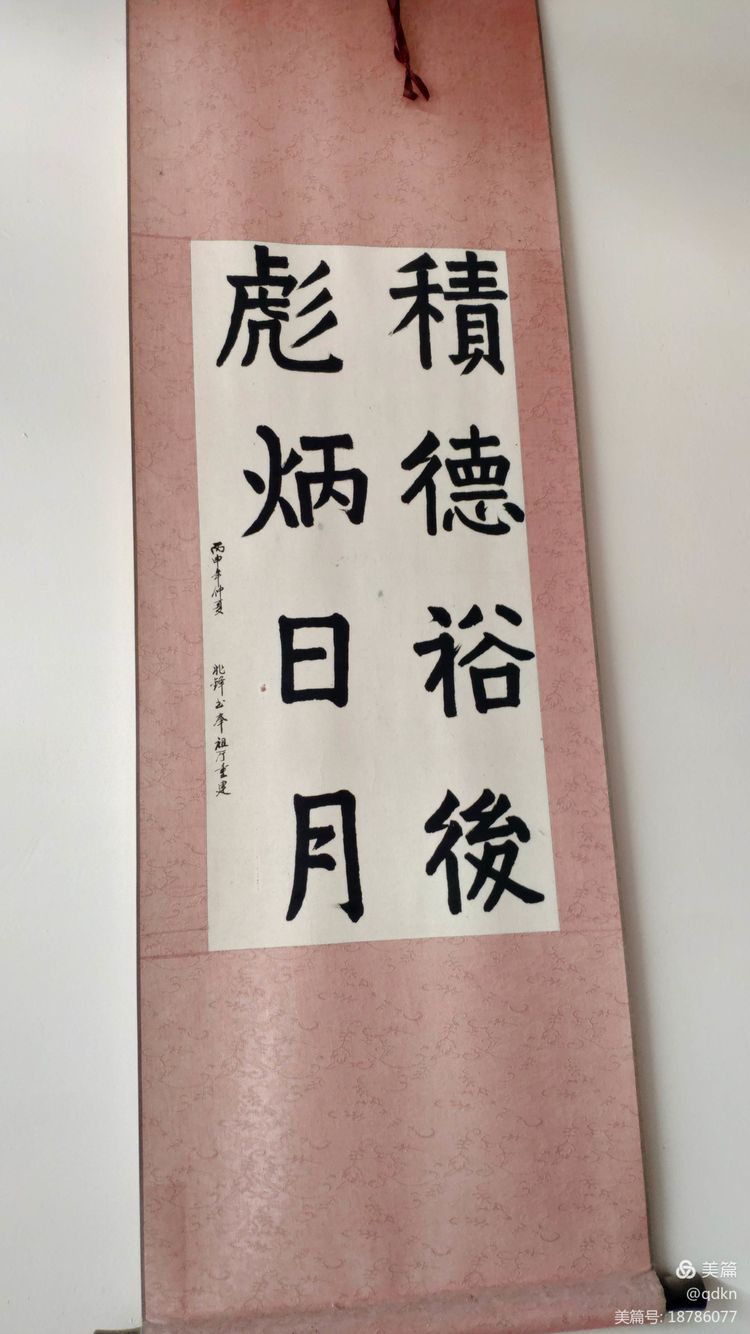 積德裕後
彪炳日月
丙申年仲夏 兆鋒书奉祖厅重建
美篇
@qdkn
美篇号: 18786077